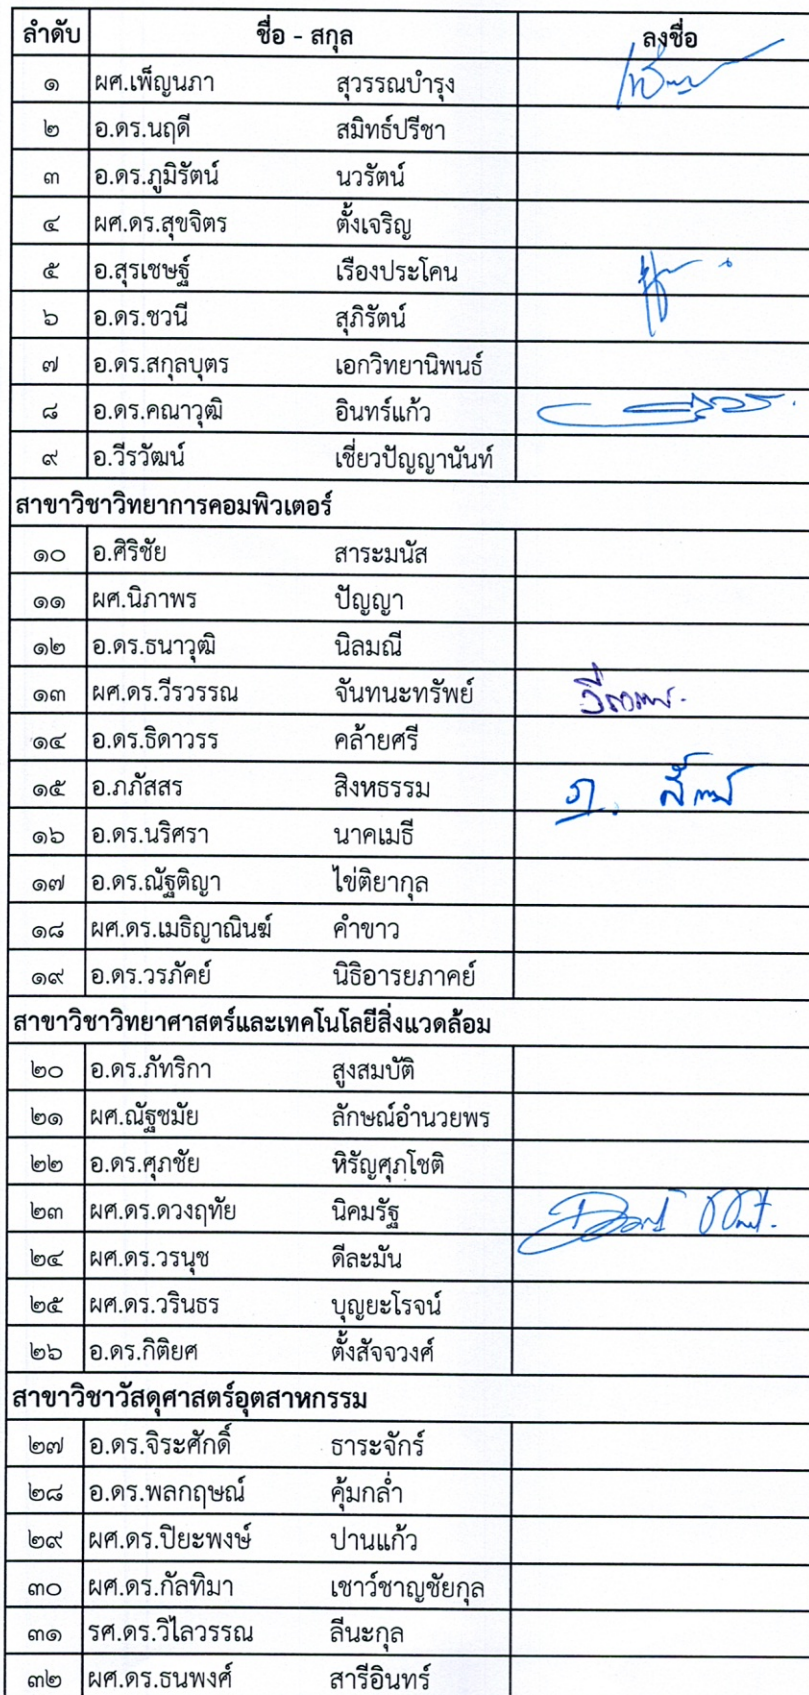 ลำดับ ชื่อ - สกุล ลงชื่อ
๑ ผศ.เพ็ญนภา สุวรรณบำรุง
๒ อ.ดร.นฤดี สมิทธ์ปรีชา
๓ อ.ดร.ภูมิรัตน์ นวรัตน์
๔ ผศ.ดร.สุขจิตร ตั้งเจริญ
๕ อ.สุรเชษฐ์ เรืองประโคน
๖ อ.ดร.ชวนี สุภิรัตน์
๗ อ.ดร.สกุลบุตร เอกวิทยานิพนธ์
๘ อ.ดร.คณาวุฒิ อินทร์แก้ว
๙ อ.วีรวัฒน์ เชี่ยวปัญญานันท์
สาขาวิชาวิทยาการคอมพิวเตอร์
๑๐ อ.ศิริชัย สาระมนัส
๑๑ ผศ.นิภาพร ปัญญา
๑๒ อ.ดร.ธนาวุฒิ นิลมณี
๑๓ ผศ.ดร.วีรวรรณ จันทนะทรัพย์
๑๔ อ.ดร.ธิดาวรร คล้ายศรี
๑๕ อ.ภภัสสร สิงหธรรม
๑๖ อ.ดร.นริศรา นาคเมธี
๑๗ อ.ดร.ณัฐติญา ไข่ติยากุล
๑๘ ผศ.ดร.เมธิญาณินฆ์ คำขาว
๑๙ อ.ดร.วรภัคย์ นิธิอารยภาคย์
สาขาวิชาวิทยาศาสตร์และเทคโนโลยีสิ่งแวดล้อม
๒๐ อ.ดร.ภัทริกา สูงสมบัติ
๒๑ ผศ.ณัฐชมัย ลักษณ์อำนวยพร
๒๒ อ.ดร.ศุภชัย หิรัญศุภโชติ
๒๓ ผศ.ดร.ดวงฤทัย นิคมรัฐ
๒๔ ผศ.ดร.วรนุช ดีละมัน
๒๕ ผศ.ดร.วรินธร บุญยะโรจน์
๒๖ อ.ดร.กิติยศ ตั้งสัจจวงศ์
สาขาวิชาวัสดุศาสตร์อุตสาหกรรม
๒๗ อ.ดร.จิระศักดิ์ ธาระจักร์
๒๘ อ.ดร.พลกฤษณ์ คุ้มกล่ำ
๒๙ ผศ.ดร.ปิยะพงษ์ ปานแก้ว
๓๐ ผศ.ดร.กัลทิมา เชาว์ชาญชัยกุล
๓๑ รศ.ดร.วิไลวรรณ ลีนะกุล
๓๒ ผศ.ดร.ธนพงศ์ สารีอินทร์